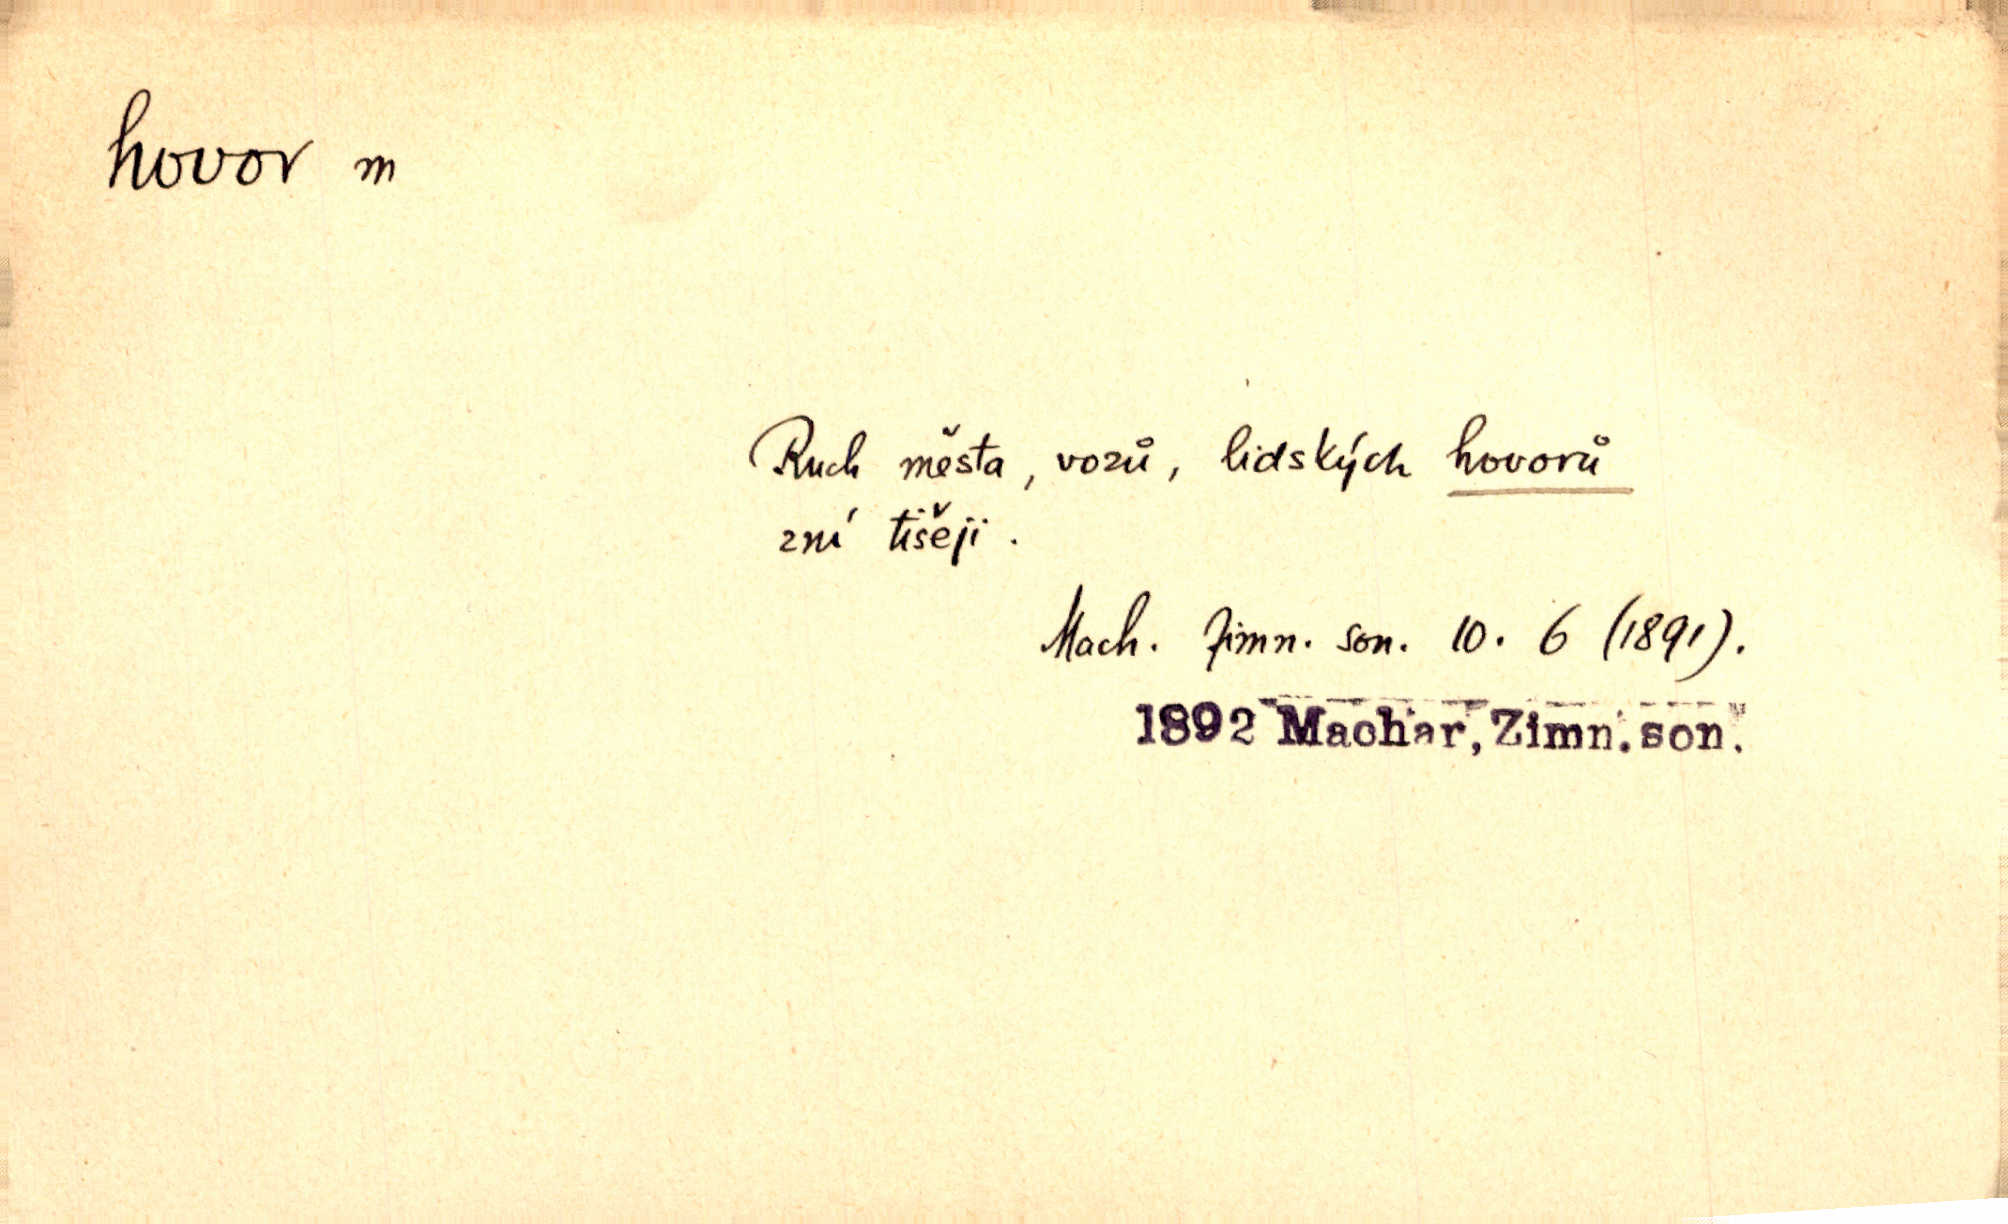 hovor m
Ruch města, vozů, lidských hovorů
zní tišeji.
Mach. Zimn. son. 10. 6 (1891).
1892 Machar, Zimn. son.